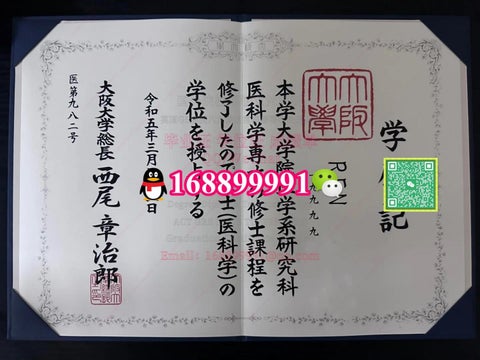 学 記
大阪大學
REN
九九九九
本学大学院 学系研究科
医科学専 修士課程を
修了したので 士(医科学)の
学位を授 る
令和五年三月 日
大阪大学総長 西尾章治郎
医第九八二号
168899991